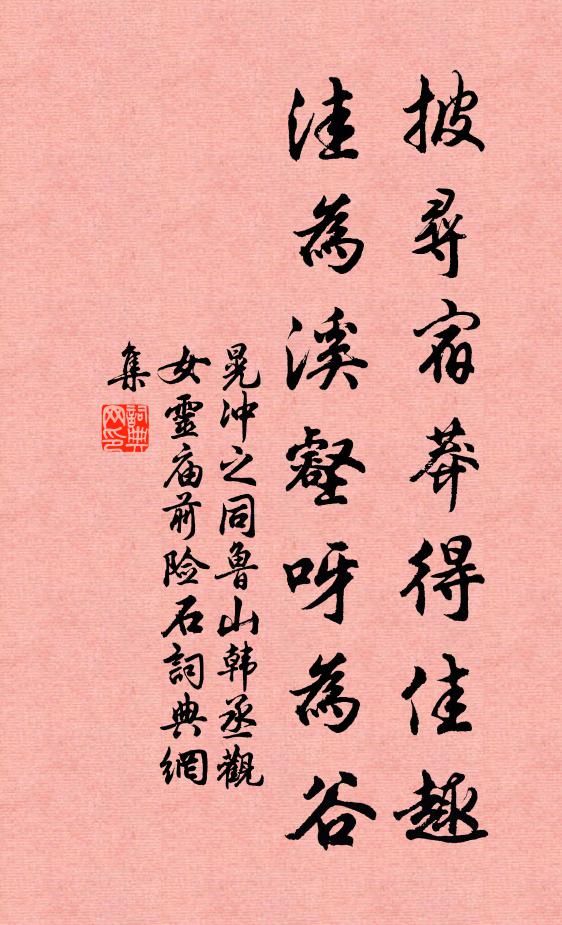 披尋宿莽得佳趣
洼為溪壑呀為谷
晁冲之同魯山韩丞觀
女靈庙前险石詞典網
集
詞典
网印